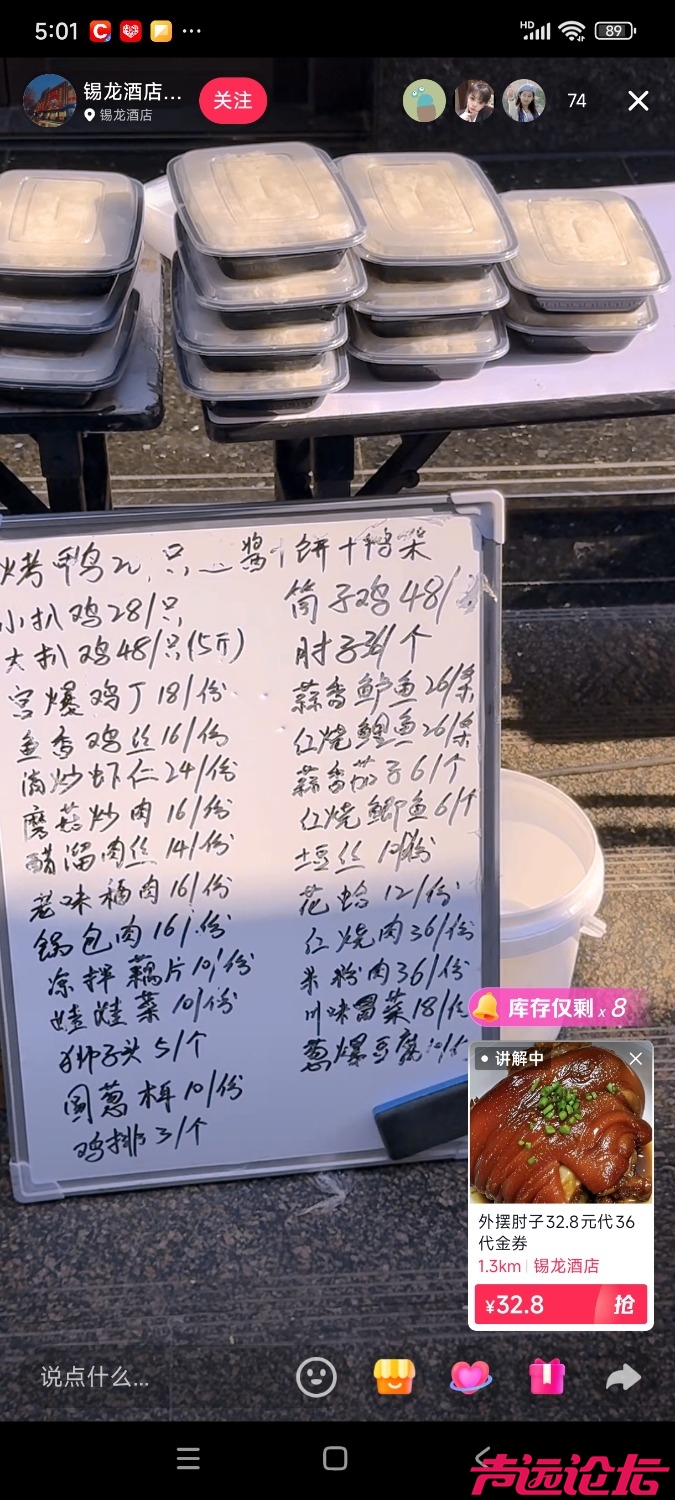 5:01
HD
89
锡龙酒店...
锡龙酒店
关注
74
烤鸭
只
酱+饼+鸭架
小扒鸡28/只
大扒鸡48/只(5斤)
宫爆鸡丁18/份
鱼香鸡丝16/份
清炒虾仁24/份
磨菇炒肉16/份
醋溜肉丝14/份
老味熘肉16/份
锅包肉16/份
凉拌藕片10/份
娃娃菜10/份
狮子头5/个
圆葱木耳10/份
鸡排3/个
筒子鸡48/
肘子36/个
蒜香鲈鱼26/条
红烧鲤鱼26/条
蒜香茄子6/个
红烧鲫鱼6/个
土豆丝10/份
花蛤12/份
红烧肉36/份
米粉肉36/份
川味冒菜18/份
葱爆豆腐10/份
库存仅剩 x 8
讲解中
外摆肘子32.8元代36
代金券
1.3km 锡龙酒店
¥32.8
抢
说点什么...
声远论坛